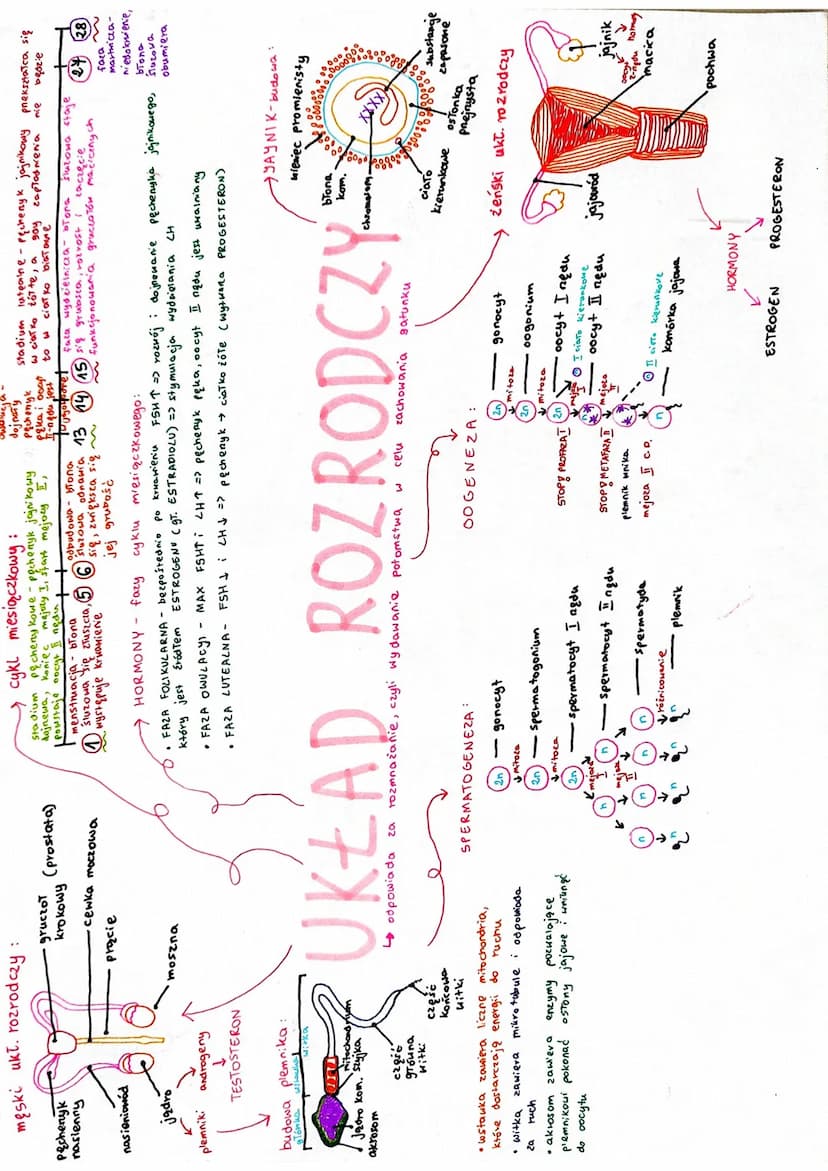 UKŁAD ROZRODCZY
↳ odpowiada za rozmnażanie, czyli wydawanie potomstwa w celu zachowania gatunku
męski ukł. rozrodczy:
pęcherzyk
nasienny
gruczoł
krokowy (prostata)
cewka moczowa
prącie
nasieniowód
moszna
jądro
plemniki
androgeny
TESTOSTERON
cykl miesiączkowy:
stadium pęcherzykowe - pęcherzyk jajnikowy
dojrzewa, koniec mejozy I, start mejozy II,
powstaje oocyt II rzędu
owulacja -
dojrzały
pęcherzyk
pęka i oocyt
II rzędu jest
uwalniany
stadium lutealne - pęcherzyk jajnikowy przekształca się
w ciałko żółte, a gdy zapłodnienia nie będzie
to w ciałko białawe
1 5 6 13 14 15 27 28
menstruacja - błona
śluzowa się złuszcza,
występuje krwawienie
odbudowa - błona
śluzowa odnawia
się, zwiększa się
jej grubość
faza wydzielnicza - błona śluzowa staje
się grubsza, rozrost i zaczęcie
funkcjonowania gruczołów macicznych
faza
martwicza -
niedokrwienie,
błona
śluzowa
obumiera
HORMONY - fazy cyklu miesiączkowego:
• FAZA FOLIKULARNA - bezpośrednio po krwawieniu FSH↑ => rozwój i dojrzewanie pęcherzyka jajnikowego,
który jest źródłem ESTROGENU (gł. ESTRADIOLU) => stymulacja wydzielania LH
• FAZA OWULACYJ - MAX FSH↑ i LH↑ => pęcherzyk pęka, oocyt II rzędu jest uwalniany
• FAZA LUTEALNA - FSH↓ i LH↓ => pęcherzyk → ciałko żółte (wytwarza PROGESTERON)
JAJNIK - budowa:
wieniec promienisty
błona
kom.
chromosom
substancje
zapasowe
osłonka
przejrzysta
ciałko
kierunkowe
budowa plemnika:
główka wstawka witka
mitochondrium
szyjka
jądro kom.
akrosom
część
główna
witki
część
końcowa
witki
• wstawka zawiera liczne mitochondria,
które dostarczają energii do ruchu
• witka zawiera mikrotubule i odpowiada
za ruch
• akrosom zawiera enzymy pozwalające
plemnikowi pokonać osłony jajowe i wniknąć
do oocytu
SPERMATOGENEZA:
2n — gonocyt
mitoza
2n — spermatogonium
mitoza
2n — spermatocyt I rzędu
mejoza I
n n — spermatocyt II rzędu
mejoza II
n n n n — spermatyda
różnicowanie
n n n n — plemnik
OOGENEZA:
2n — gonocyt
mitoza
2n — oogonium
mitoza
2n — oocyt I rzędu
STOP! PROFAZA I
mejoza I
I ciało kierunkowe
oocyt II rzędu
STOP! METAFAZA II
mejoza II
plemnik wnika
mejoza II C.D.
II ciało kierunkowe
n — komórka jajowa
żeński ukł. rozrodczy
jajowód
jajnik
oocyt
II rzędu
hormony
macica
pochwa
HORMONY
ESTROGEN
PROGESTERON